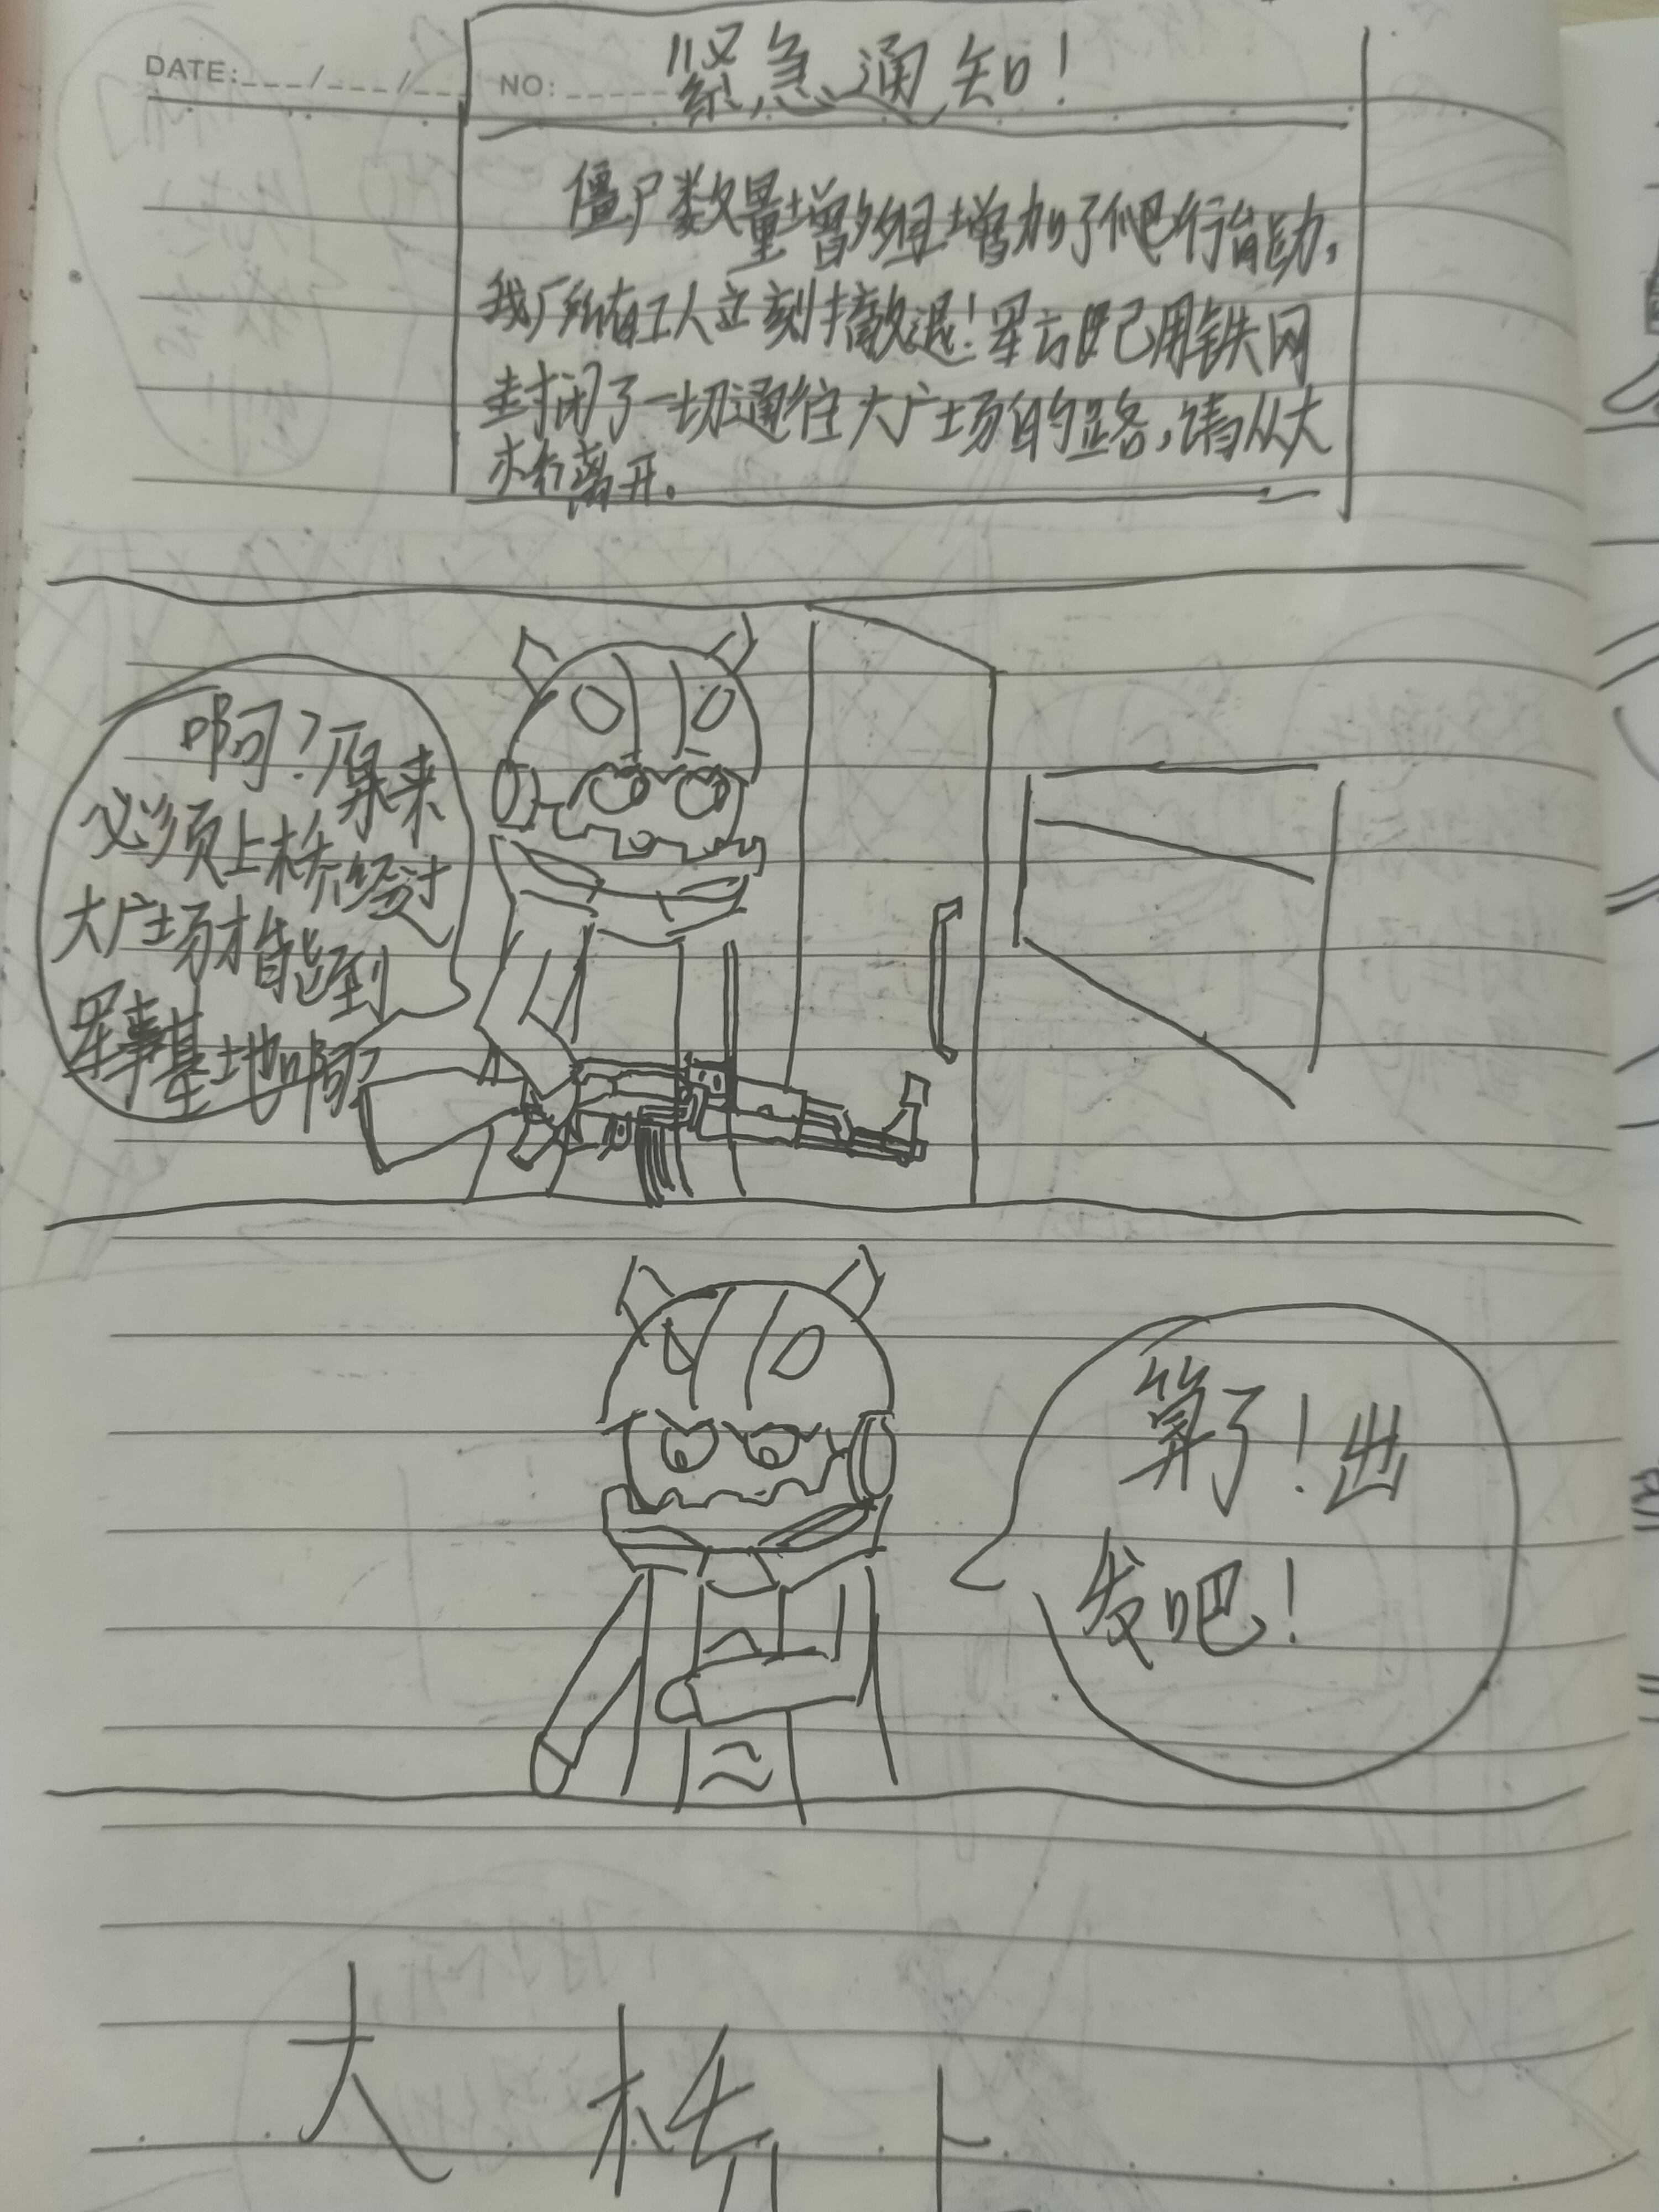 DATE:___/___/___ NO:______
紧急通知!
僵尸数量增多组增加了爬行能力,
我厂所有工人立刻撤退!军方已用铁网
封闭了一切通往大广场的路,请从大
桥离开.
啊?原来
必须上桥经过
大广场才能到
军事基地啊?
算了!出
发吧!
大桥上